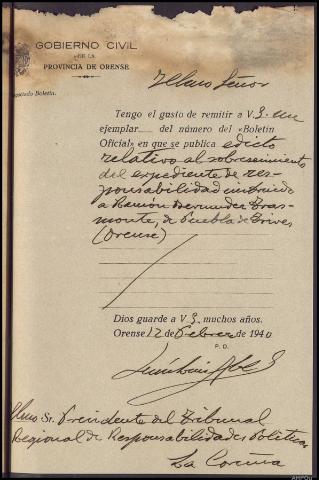 GOBIERNO CIVIL
DE LA
PROVINCIA DE ORENSE
Boletín.
Ilmo Señor
Tengo el gusto de remitir a V.I. un
ejemplar del número del «Boletín
Oficial» en que se publica edicto
relativo al sobreseimiento
del expediente de res-
ponsabilidad instruido
a Ramón Bermudez Tras-
monte, de Puebla de Trives
(Orense)
Dios guarde a V.I. muchos años.
Orense 12 de Febrero de 1940
P. D.
Ilmo Sr. Presidente del Tribunal
Regional de Responsabilidades Políticas
La Coruña